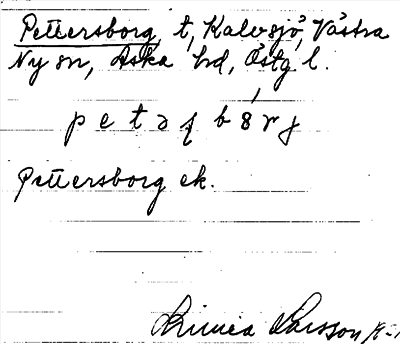 Pettersborg, t, Kalvsjö, Västra
Ny sn, Aska hd, Östg l.
Pettersborg ek.
Linnea Larsson